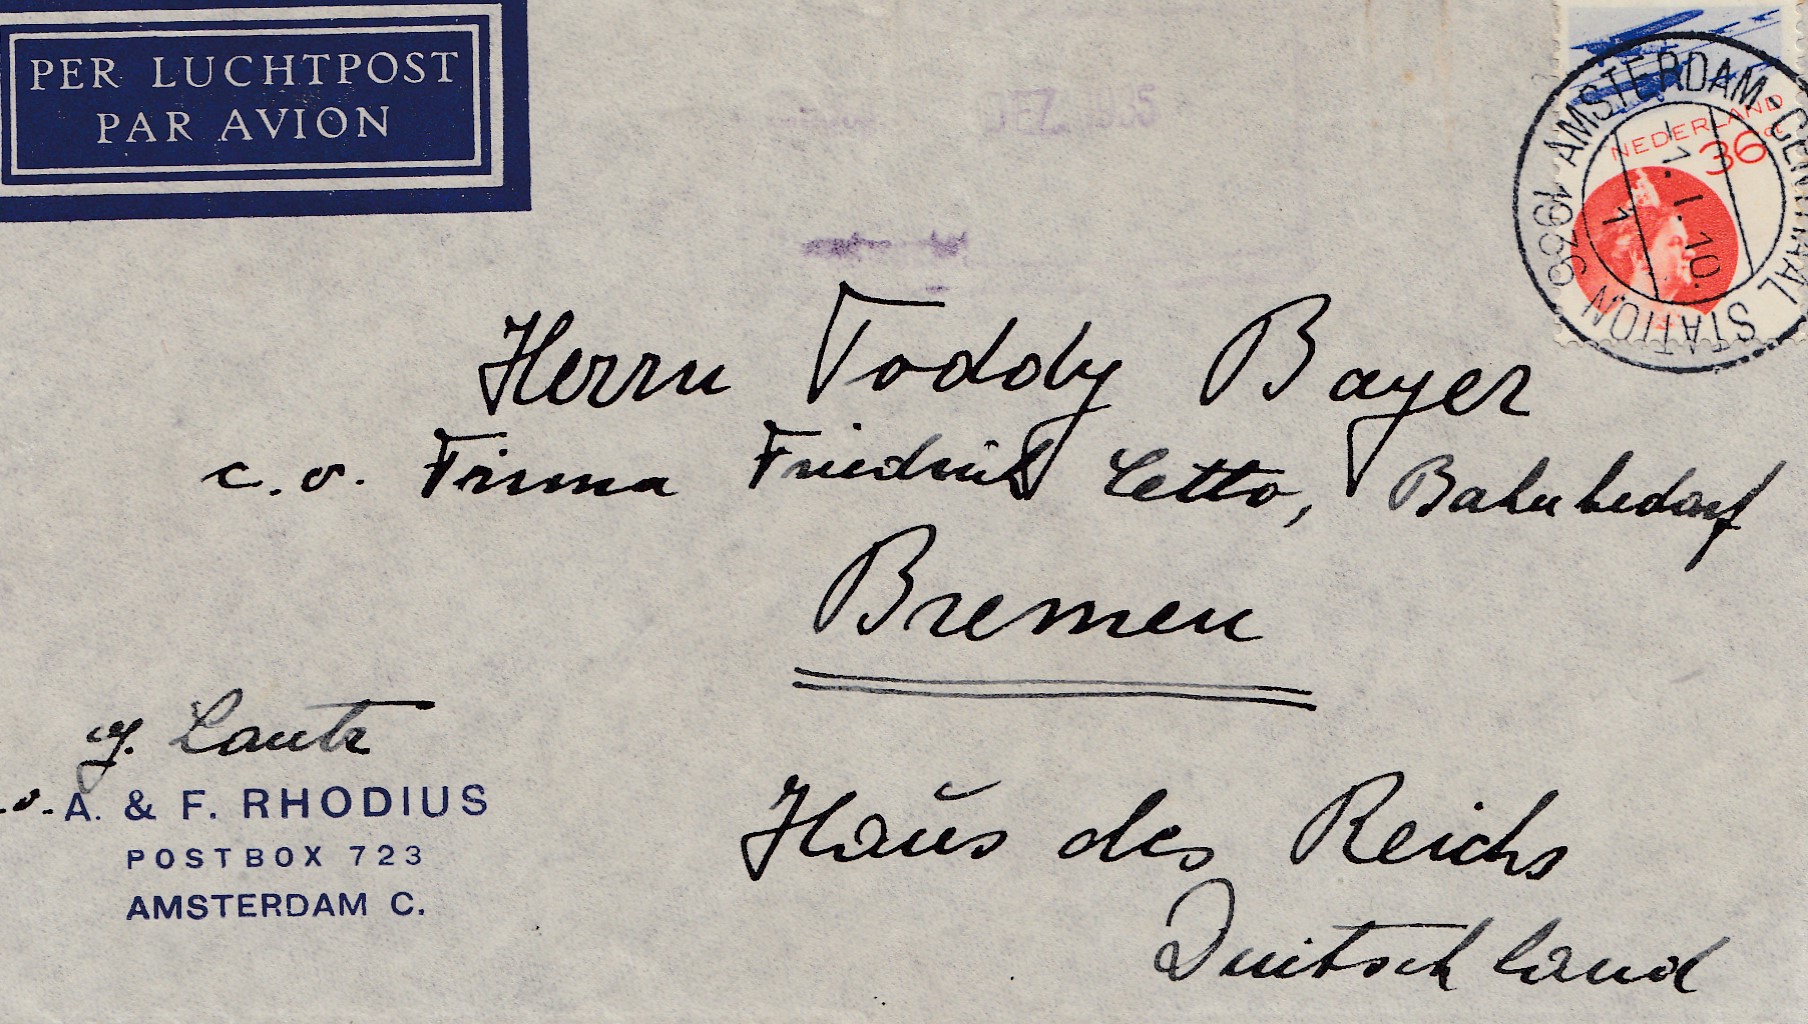 PER LUCHTPOST
PAR AVION
NEDERLAND
36 ct
AMSTERDAM • CENTRAAL STATION 1936
1. I. 10.
1
DEZ. 1935
Herrn Toddy Bayer
c.o. Firma Friedrich Cetto, Bahnbedarf
Bremen
Haŭs des Reichs
Duitschland
J. Lautz
.o. A. & F. RHODIUS
POSTBOX 723
AMSTERDAM C.